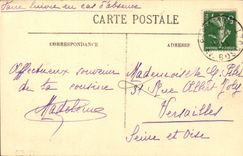 Faire suivre en cas d'absence
CARTE POSTALE
CORRESPONDANCE
ADRESSE
Affectueux souvenir
de la cousine
Mademoiselle G.
31 Rue Albert Joly
Versailles
Seine et Oise